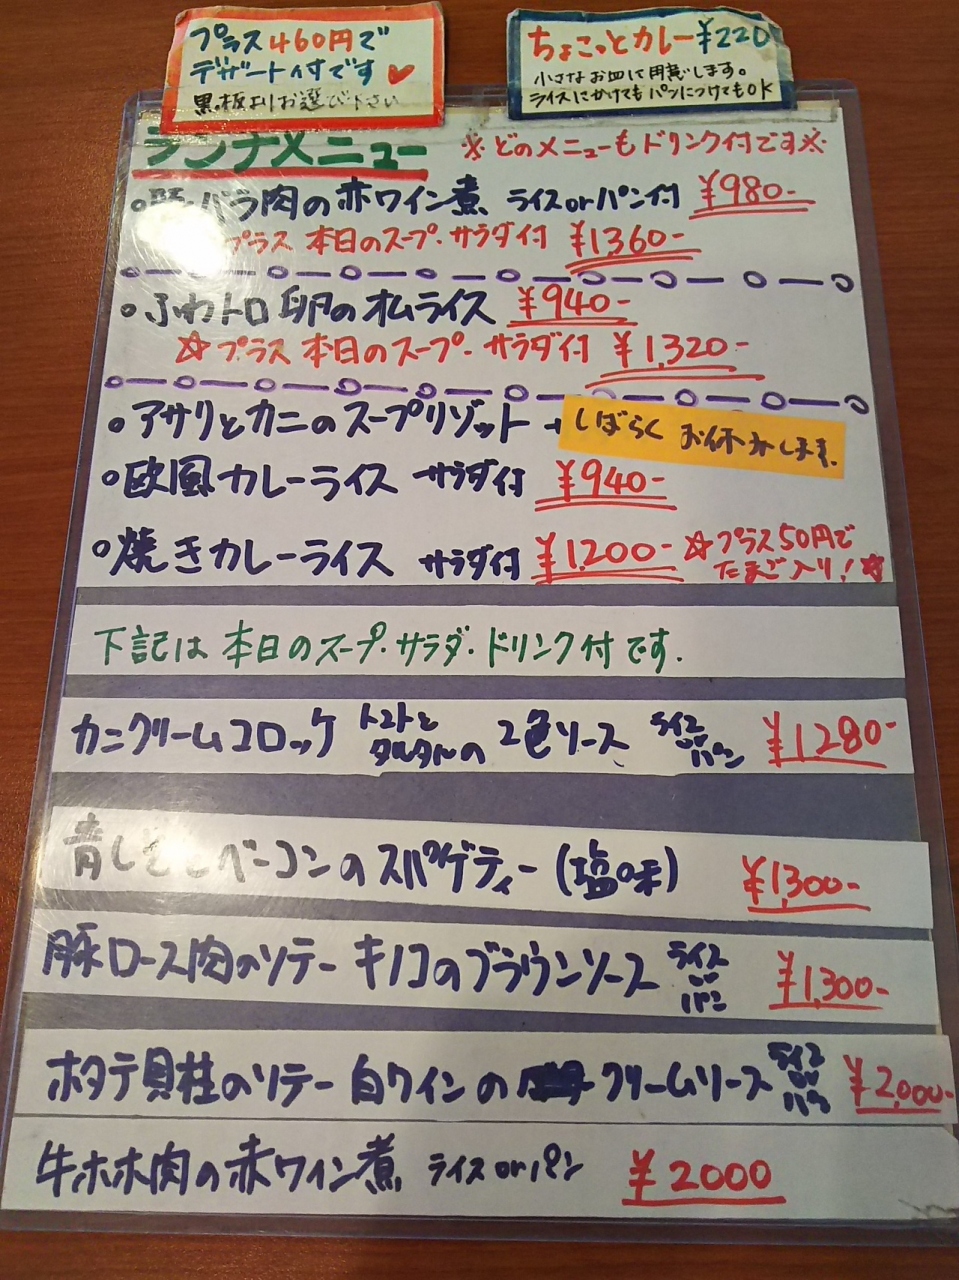 プラス460円で
デザート付です♥
黒板よりお選び下さい
ちょこっとカレー¥220
小さなお皿に用意します。
ライスにかけてもパンにつけてもOK
ランチメニュー ※どのメニューもドリンク付です※
。豚バラ肉の赤ワイン煮 ライスorパン付 ¥980-
プラス 本日のスープ・サラダ付 ¥1360-
。ふわトロ卵のオムライス ¥940-
☆プラス 本日のスープ・サラダ付 ¥1,320-
。アサリとカニのスープリゾット しばらくお休みします。
。欧風カレーライス サラダ付 ¥940-
。焼きカレーライス サラダ付 ¥1,200- ☆プラス50円で
たまご入り!☆
下記は本日のスープ・サラダ・ドリンク付です.
カニクリームコロッケ トマトとタルタルの 2色ソース ライスorパン ¥1,280-
青しそとベーコンのスパゲティー(塩味) ¥1,300-
豚ロース肉のソテー キノコのブラウンソース ライスorパン ¥1,300-
ホタテ貝柱のソテー 白ワインのクリームソース ライスorパン ¥2,000-
牛ホホ肉の赤ワイン煮 ライスorパン ¥2000